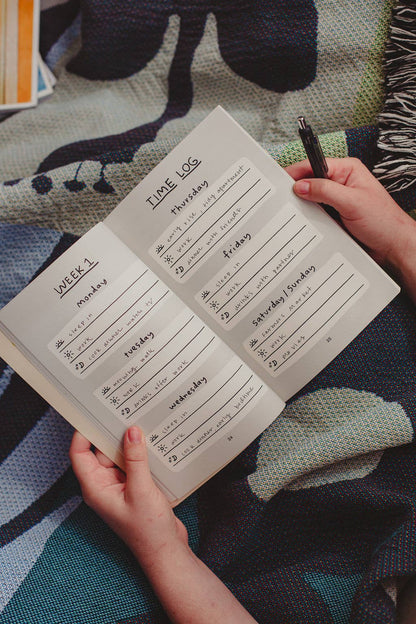 WEEK 1
monday
sleep in
work
cook dinner watch tv
tuesday
morning walk
work
drinks after work
wednesday
sleep in
work
cook dinner early bedtime
24
TIME LOG
thursday
early rise tidy apartment
work
dinner with friends
friday
sleep in
work
drinks with gardner
saturday/sunday
farmers market
work
no plans
25